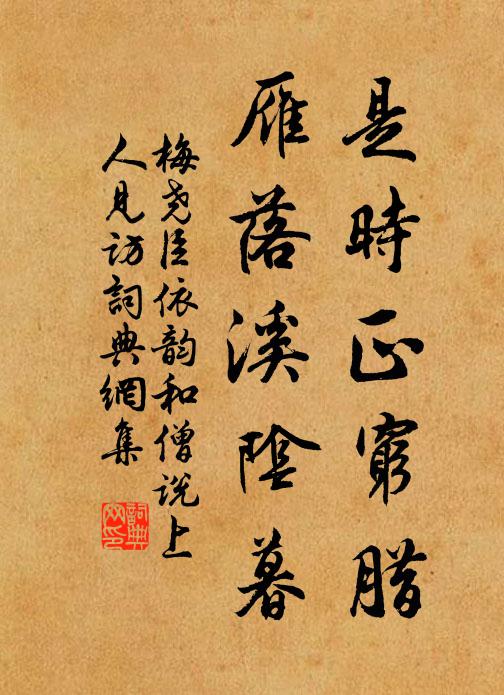 是時正窮腊
雁落溪陰暮
梅堯臣依韵和僧說上
人見訪詞典網集
詞典
网印